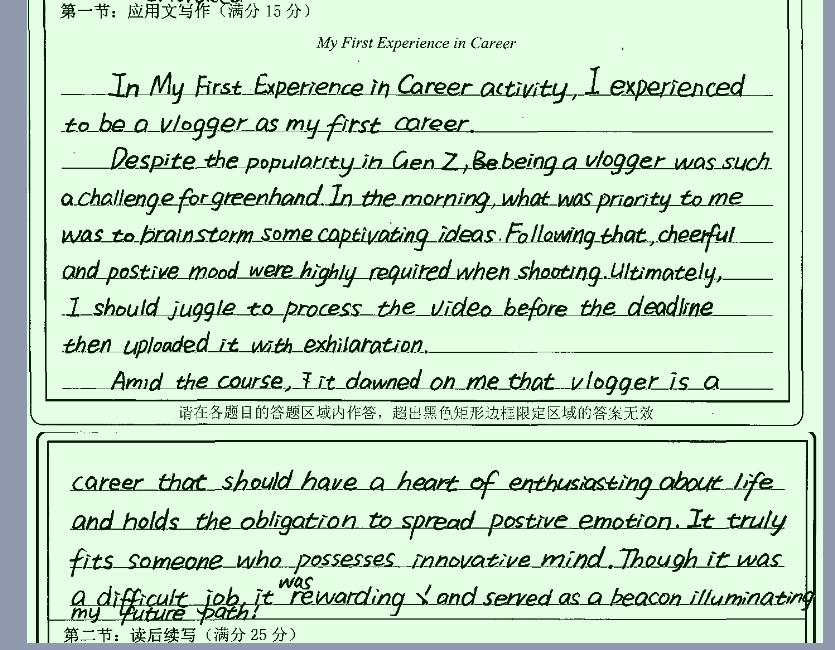 第一节：应用文写作（满分 15 分）
My First Experience in Career
In My First Experience in Career activity, I experienced
to be a vlogger as my first career.
Despite the popularity in Gen Z, being a vlogger was such
a challenge for greenhand. In the morning, what was priority to me
was to brainstorm some captivating ideas. Following that, cheerful
and postive mood were highly required when shooting. Ultimately,
I should juggle to process the video before the deadline
then uploaded it with exhilaration.
Amid the course, it dawned on me that vlogger is a
请在各题目的答题区域内作答，超出黑色矩形边框限定区域的答案无效
career that should have a heart of enthusiasting about life
and holds the obligation to spread postive emotion. It truly
fits someone who possesses innovative mind. Though it was
a difficult job, it was rewarding and served as a beacon illuminating
my future path!
第二节：读后续写（满分 25 分）